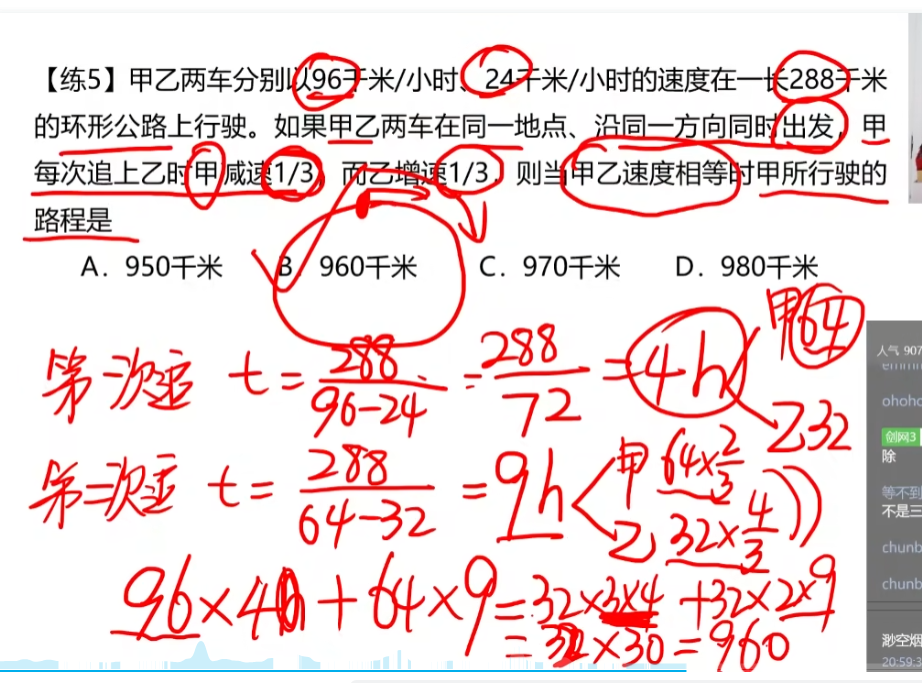 【练5】甲乙两车分别以96千米/小时、24千米/小时的速度在一长288千米
的环形公路上行驶。如果甲乙两车在同一地点、沿同一方向同时出发，甲
每次追上乙时甲减速1/3，而乙增速1/3，则当甲乙速度相等时甲所行驶的
路程是
A．950千米 B．960千米 C．970千米 D．980千米
甲64
第一次追 t=288/(96-24)=288/72=4h
乙32
第二次追 t=288/(64-32)=9h
甲 64×2/3
乙 32×4/3
96×4+64×9=32×3×4+32×2×9
=32×30=960
人气 907
ohoho
剑网3
除
等不到
不是三
chunb
chunb
渺空烟
20:59:3